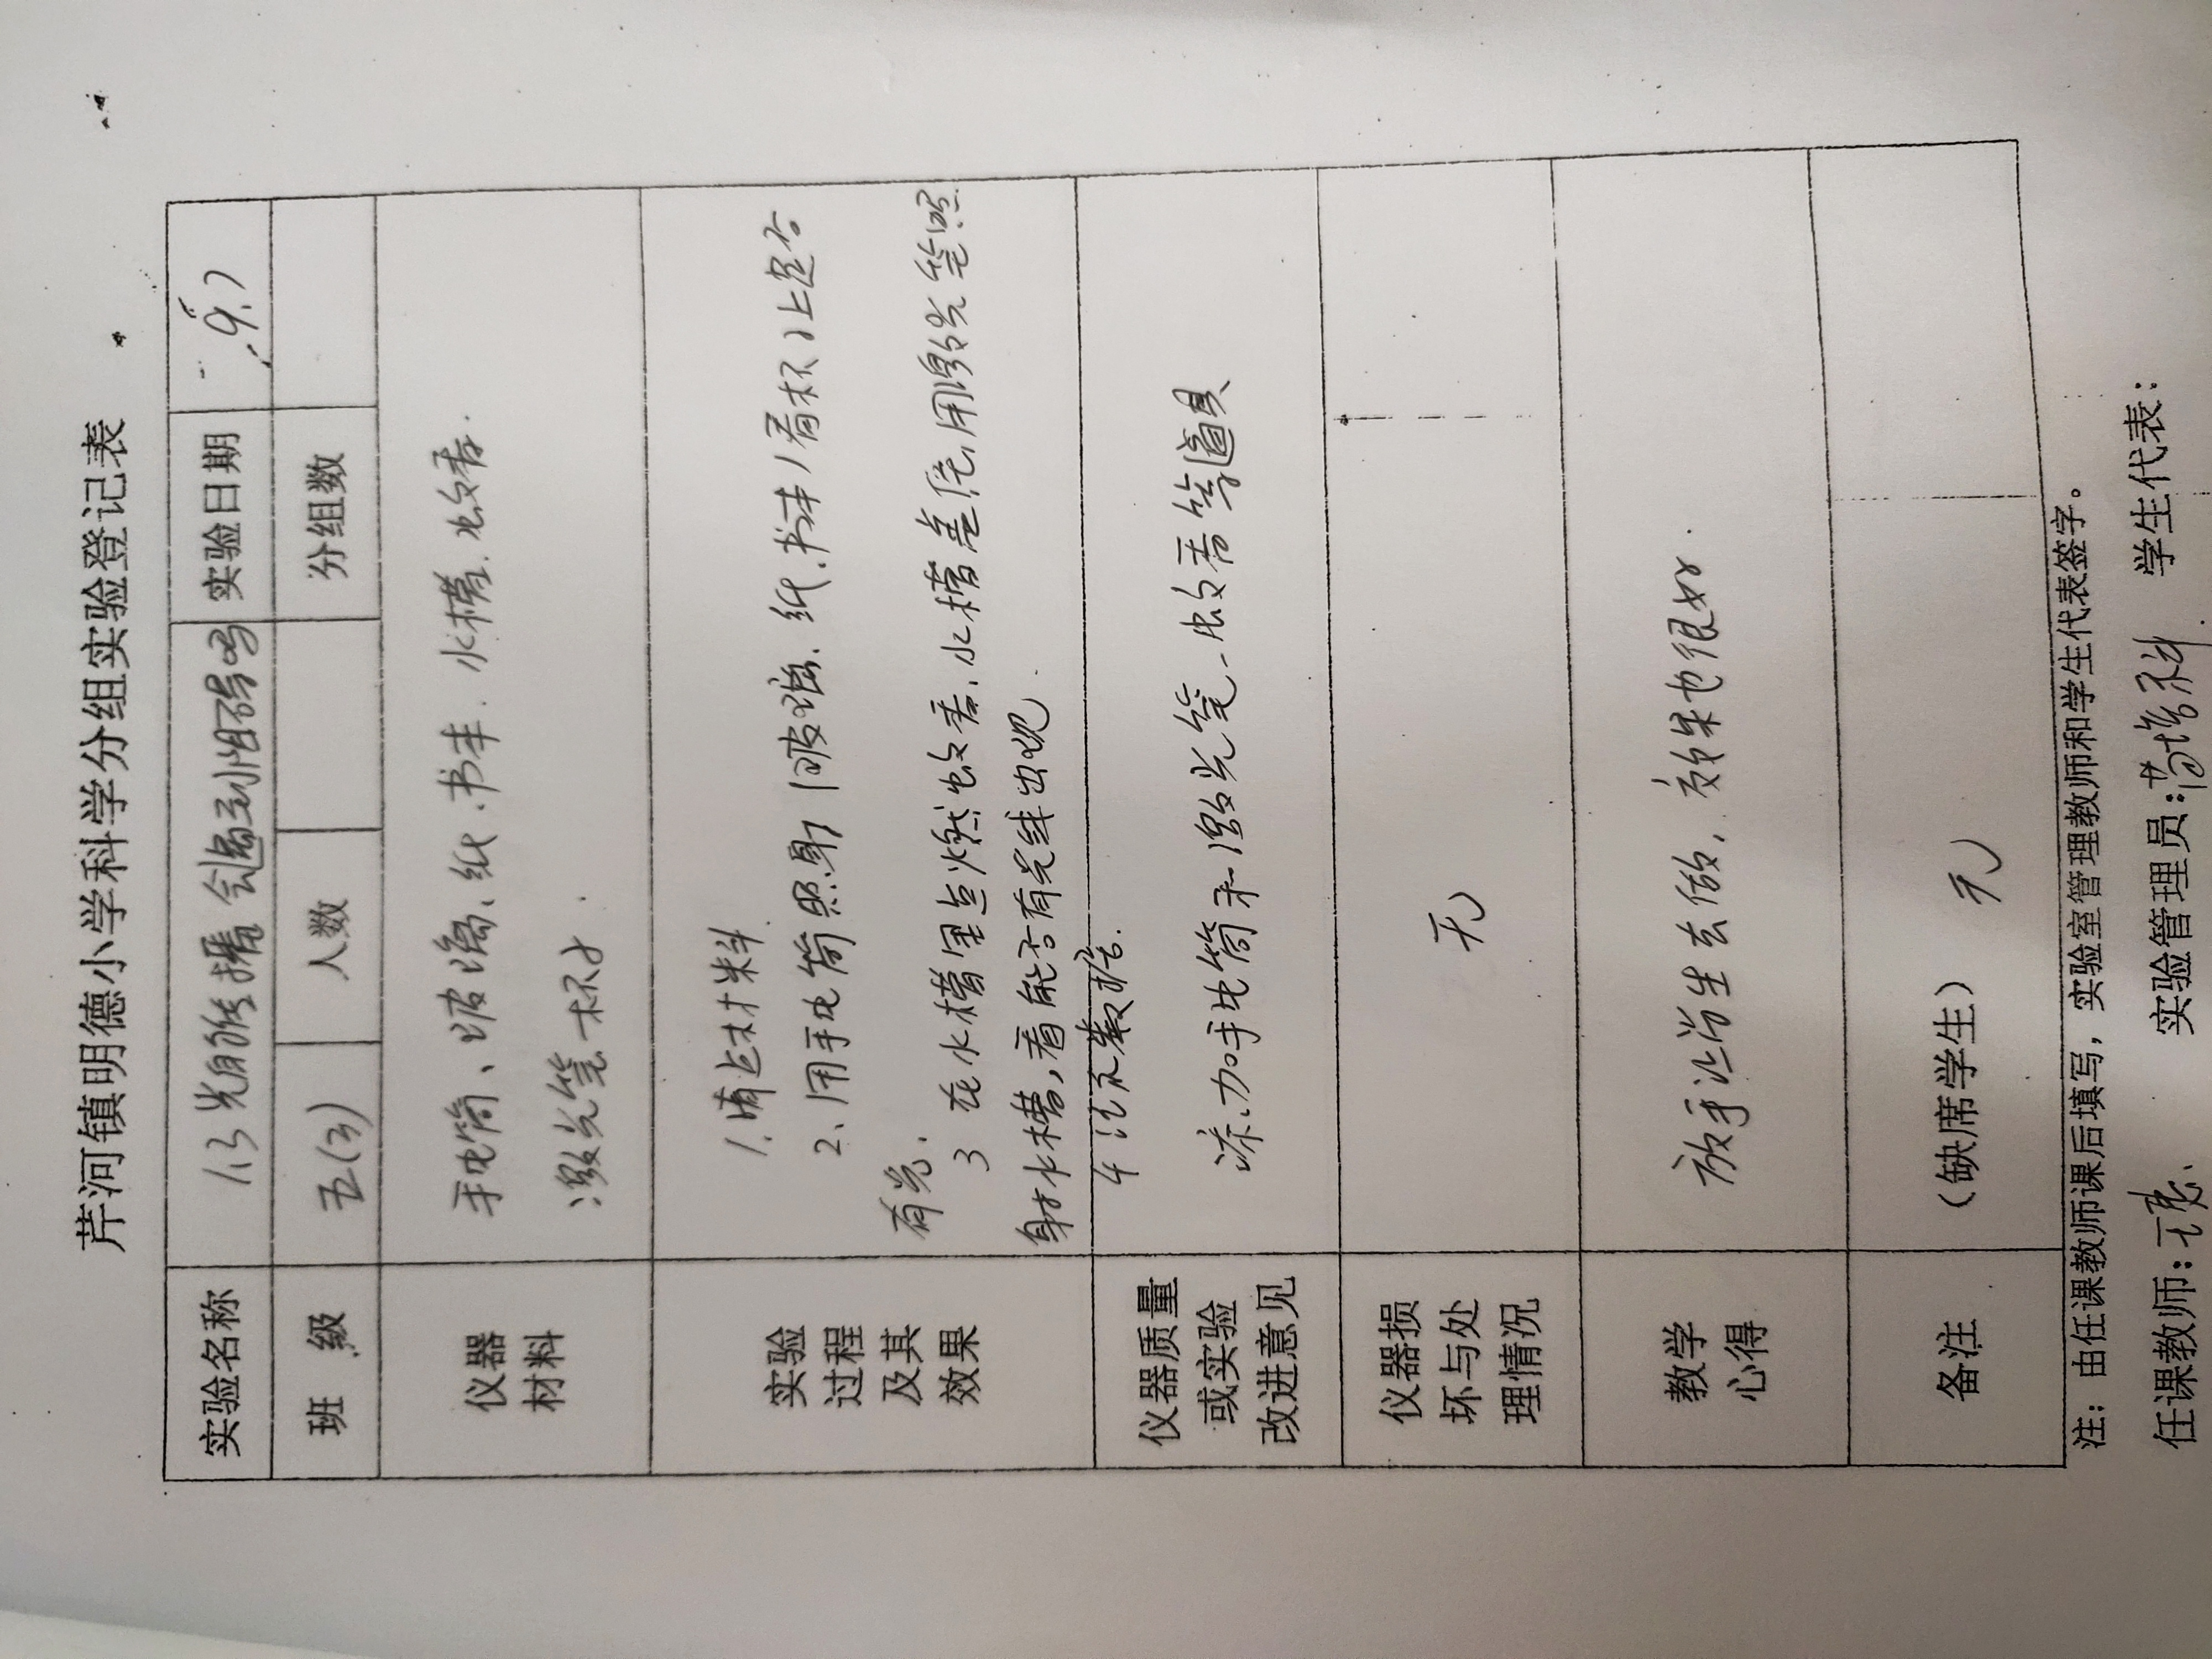 芹河镇明德小学科学分组实验登记表
实验名称 1.3光的传播会遇到阻碍吗 实验日期 9.7
班 级 五(3) 人数 分组数
仪器材料 手电筒、玻璃、纸、书本、水槽、蚊香、
激光笔、杯子.
实验过程及其效果
1.准备材料
2、用手电筒照射(玻璃、纸、书本)看杯子上是否
有光.
3 在水槽里点燃蚊香、水槽盖住,用激光笔照
射水槽,看能否有光线出现
4 记录数据.
仪器质量或实验改进意见 添加手电筒和激光笔、蚊香等道具
仪器损坏与处理情况 无
教学心得 放手让学生去做,效果也很好.
备注 (缺席学生) 无
注:由任课教师课后填写,实验室管理教师和学生代表签字。
任课教师: 实验管理员: 学生代表: